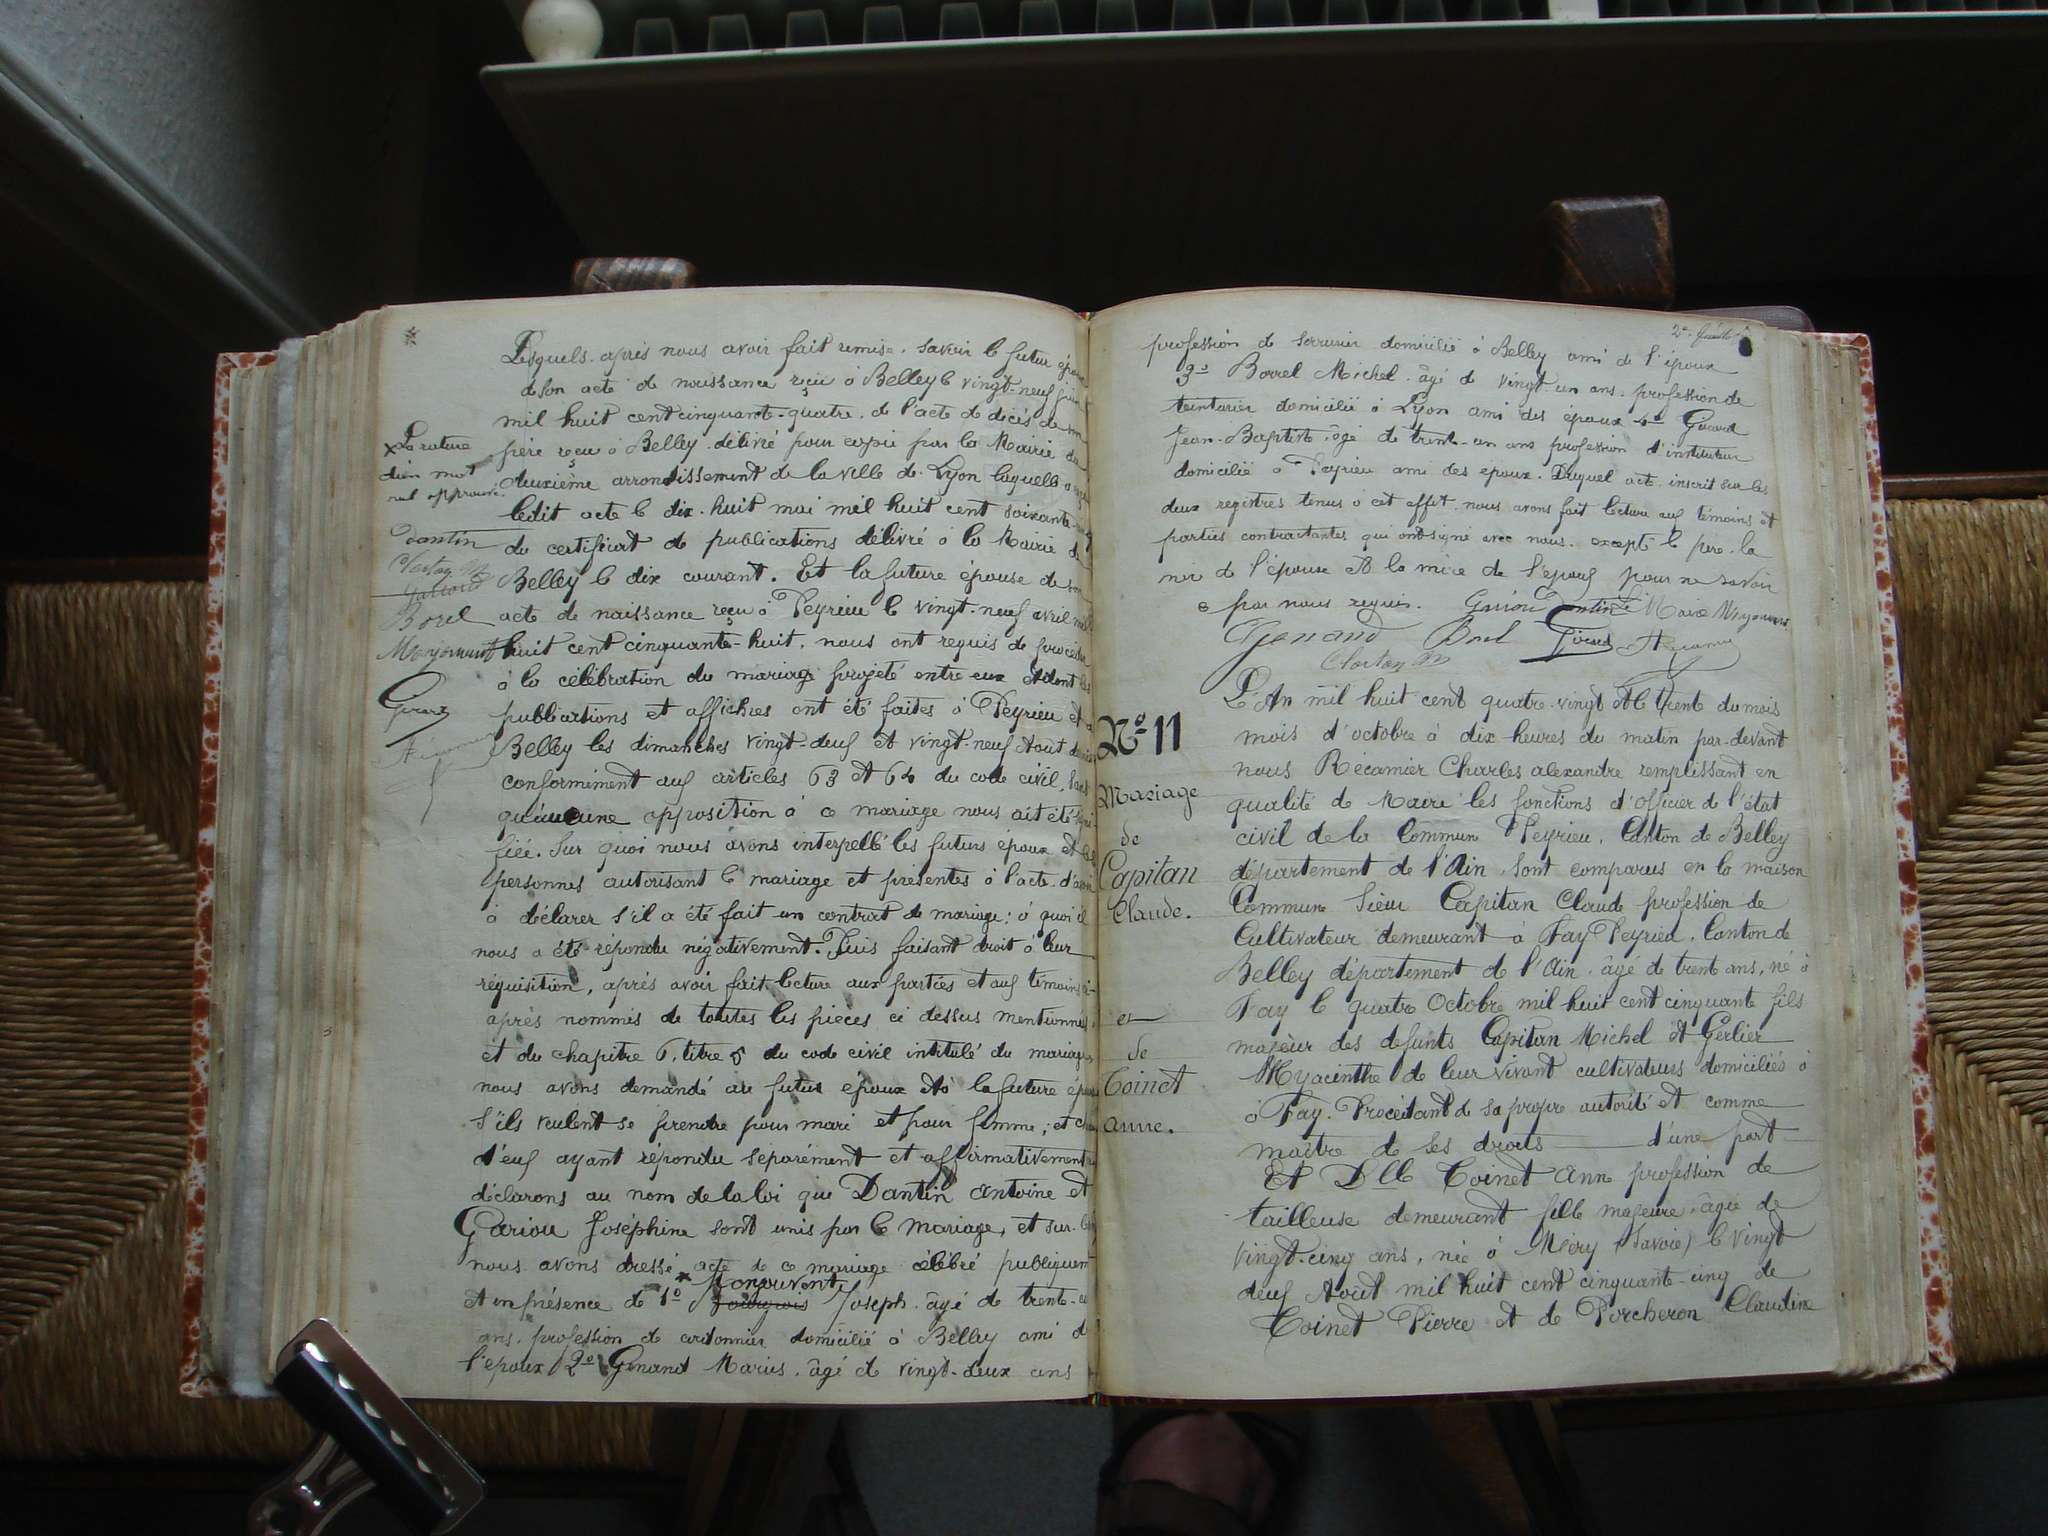 Lesquels après nous avoir fait remise, savoir le futur époux
de son acte de naissance reçu à Belley le vingt-neuf juin
mil huit cent cinquante-quatre, de l'acte de décès de son
père reçu à Belley délivré pour copie par la Mairie du
deuxième arrondissement de la ville de Lyon laquelle a reçu
ledit acte le dix-huit mai mil huit cent soixante
du certificat de publications délivré à la Mairie de
Belley le dix courant. Et la future épouse de son
acte de naissance reçu à Peyrieu le vingt-neuf avril mil
huit cent cinquante-huit, nous ont requis de procéder
à la célébration du mariage projeté entre eux et dont les
publications et affiches ont été faites à Peyrieu et à
Belley les dimanches vingt-deuf et vingt-neuf Août dernier
conformément auf articles 63 et 64 du code civil, sans
qu'aucune opposition à ce mariage nous ait été signi-
fiée. Sur quoi nous avons interpellé les futurs époux et les
personnes autorisant le mariage et présentes à l'acte d'avoir
à déclarer s'il a été fait un contrat de mariage; à quoi il
nous a été répondu négativement. Puis faisant droit à leur
réquisition, après avoir fait lecture aux parties et auf témoins ci-
après nommés de toutes les pièces ci dessus mentionnées
et du chapitre 6, titre 5 du code civil intitulé du mariage
nous avons demandé au futur époux et à la future épouse
s'ils veulent se prendre pour mari et pour femme; et chacun
d'euf ayant répondu séparément et affirmativement
déclarons au nom de la loi que Dantin Antoine et
Gariou Joséphine sont unis par le mariage, et sur-le-
nous avons dressé acte de ce mariage célébré publiquement
x Monouvent
et en présence de 1º Joseph, âgé de trente-
ans, profession de cordonnier domicilié à Belley ami de
l'époux 2º Genand Marius, âgé de vingt-deux ans
x La rature
d'un mot
nul approuvé.
Dantin
Chartan M
Borel
Girard
2e feuillet
profession de serrurier domicilié à Belley ami de l'époux
3º Borrel Michel, âgé de vingt-un ans, profession de
teinturier domicilié à Lyon ami des époux 4º Girard
Jean-Baptiste, âgé de trente-un ans profession d'instituteur
domicilié à Peyrieu ami des époux. Duquel acte inscrit sur les
deux registres tenus à cet effet nous avons fait lecture auf témoins et
parties contractantes qui ont signé avec nous, excepté le père, la
mère de l'épouse et la mère de l'épouf pour ne savoir
e par nous requis. Gariou Dantin
Genand Borel Girard
Chartan M
Nº 11
Mariage
de
Capitan
Claude.
et
de
Coinet
anne.
L'An mil huit cent quatre-vingt et le trente du mois
mois d'octobre à dix heures du matin par-devant
nous Récamier Charles alexandre remplissant en
qualité de Maire les fonctions d'officier de l'état
civil de la Commune Peyrieu, Canton de Belley
département de l'Ain, sont comparus en la maison
Commune Sieur Capitan Claude profession de
Cultivateur demeurant à Fay Peyrieu, Canton de
Belley département de l'Ain, âgé de trente ans, né à
Fay le quatre Octobre mil huit cent cinquante fils
majeur des defunts Capitan Michel et Gerlier
Hyacinthe de leur vivant cultivateurs domiciliés à
à Fay. Procédant de sa propre autorité et comme
maître de ses droits d'une part
Et Dlle Coinet Anne profession de
tailleuse demeurant fille majeure, âgée de
vingt-cinq ans, née à Méry (Savoie) le vingt
deuf Août mil huit cent cinquante-cinq de
Coinet Pierre et de Porcheron Claudine